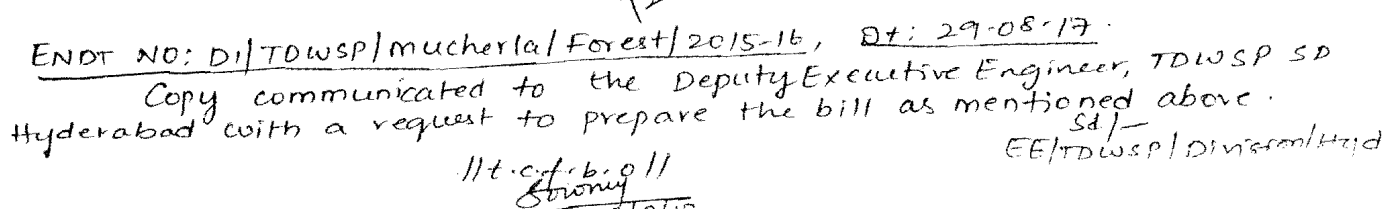 ENDT NO: D1/TDWSP/Mucherla/Forest/2015-16, Dt: 29-08-17.
Copy communicated to the Deputy Executive Engineer, TDWSP SD
Hyderabad with a request to prepare the bill as mentioned above.
Sd/-
EE/TDWSP/Division/Hyd
//t.c.f.b.o//